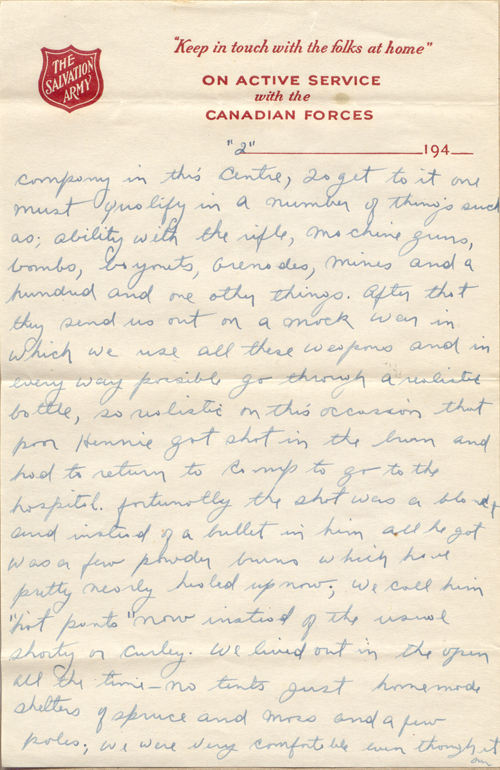 THE
SALVATION
ARMY
"Keep in touch with the folks at home"
ON ACTIVE SERVICE
with the
CANADIAN FORCES
"2" 194
company in this Centre, to get to it one
must qualify in a number of things such
as; ability with the rifle, machine guns,
bombs, bayonets, Grenades, mines and a
hundred and one other things. After that
they send us out on a mock war in
which we use all these weapons and in
every way possible go through a realistic
battle, so realistic on this occassion that
poor Hennie got shot in the bum and
had to return to Camp to go to the
hospital. fortunatly the shot was a blank
and instead of a bullet in him all he got
was a few powder burns which have
pretty nearly healed up now; we call him
"hot pants" now instead of the usual
shorty or curley. We lived out in the open
all the time - no tents just homemade
shelters of spruce and moss and a few
poles; we were very comfortable even though it